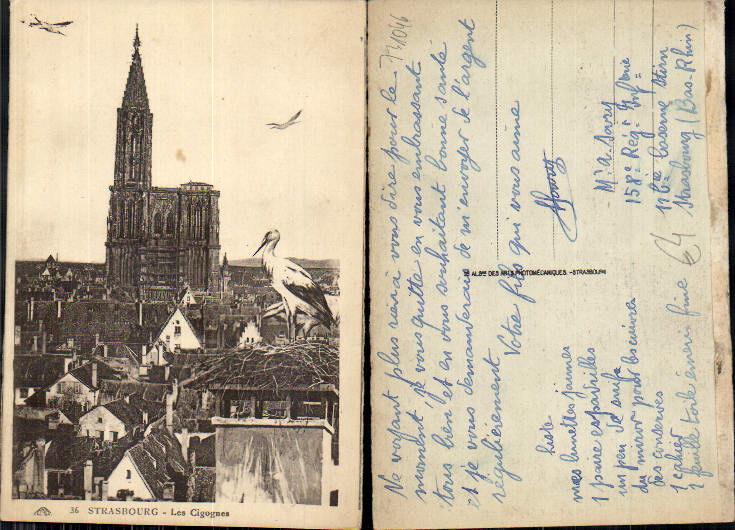 36 STRASBOURG - Les Cigognes
Ne voyant plus rien à vous dire pour le
moment, je vous quitte en vous embrassant
tous bien et en vous souhaitant bonne santé
et je vous demanderai de m'envoyer de l'argent
régulièrement
Votre fils qui vous aime
Liste
mes lunettes jaunes
1 paire espadrilles
un peu de suif
du miror pour les cuivres
des conserves
1 cahier
1 feuille toile émeri fine
ALBUM DES ARTS PHOTOMÉCANIQUES. - STRASBOURG
158e Rég. Inf.rie
11e Cie Caserne Stirn
Strasbourg (Bas-Rhin)
€4